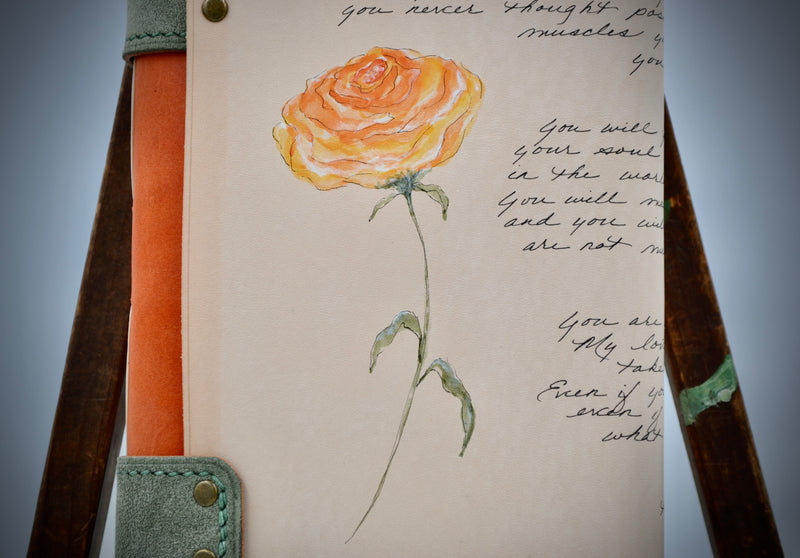 you never thought pos
muscles y
you
you will
your soul
in the wor
you will me
and you wi
are not me
you are
My lo
take
Even if yo
even if
what